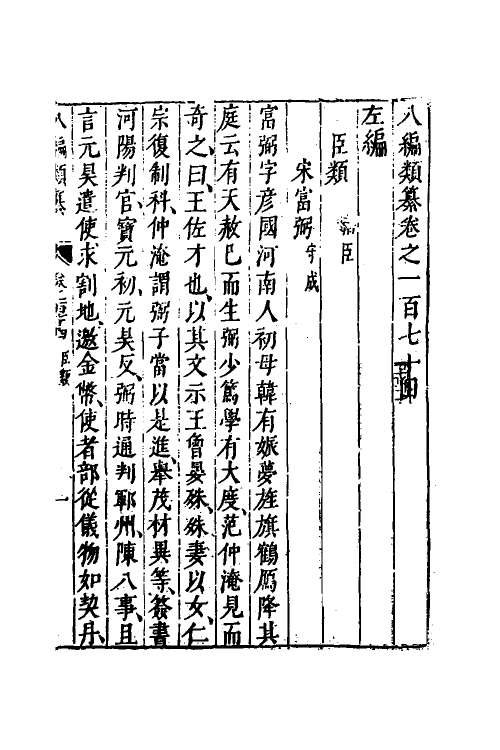 八編類纂卷之一百七十四
左編
臣類 輔臣
宋富弼 守成
富弼字彥國河南人初母韓有娠夢旌旗鶴鴈降其
庭云有天赦已而生弼少篤學有大度范仲淹見而
奇之曰王佐才也以其文示王曾晏殊殊妻以女仁
宗復制科仲淹謂弼子當以是進舉茂材異等簽書
河陽判官寶元初元昊反弼時通判鄆州陳八事且
言元昊遣使求割地邀金幣使者部從儀物如契丹
八編類纂 臣類 一